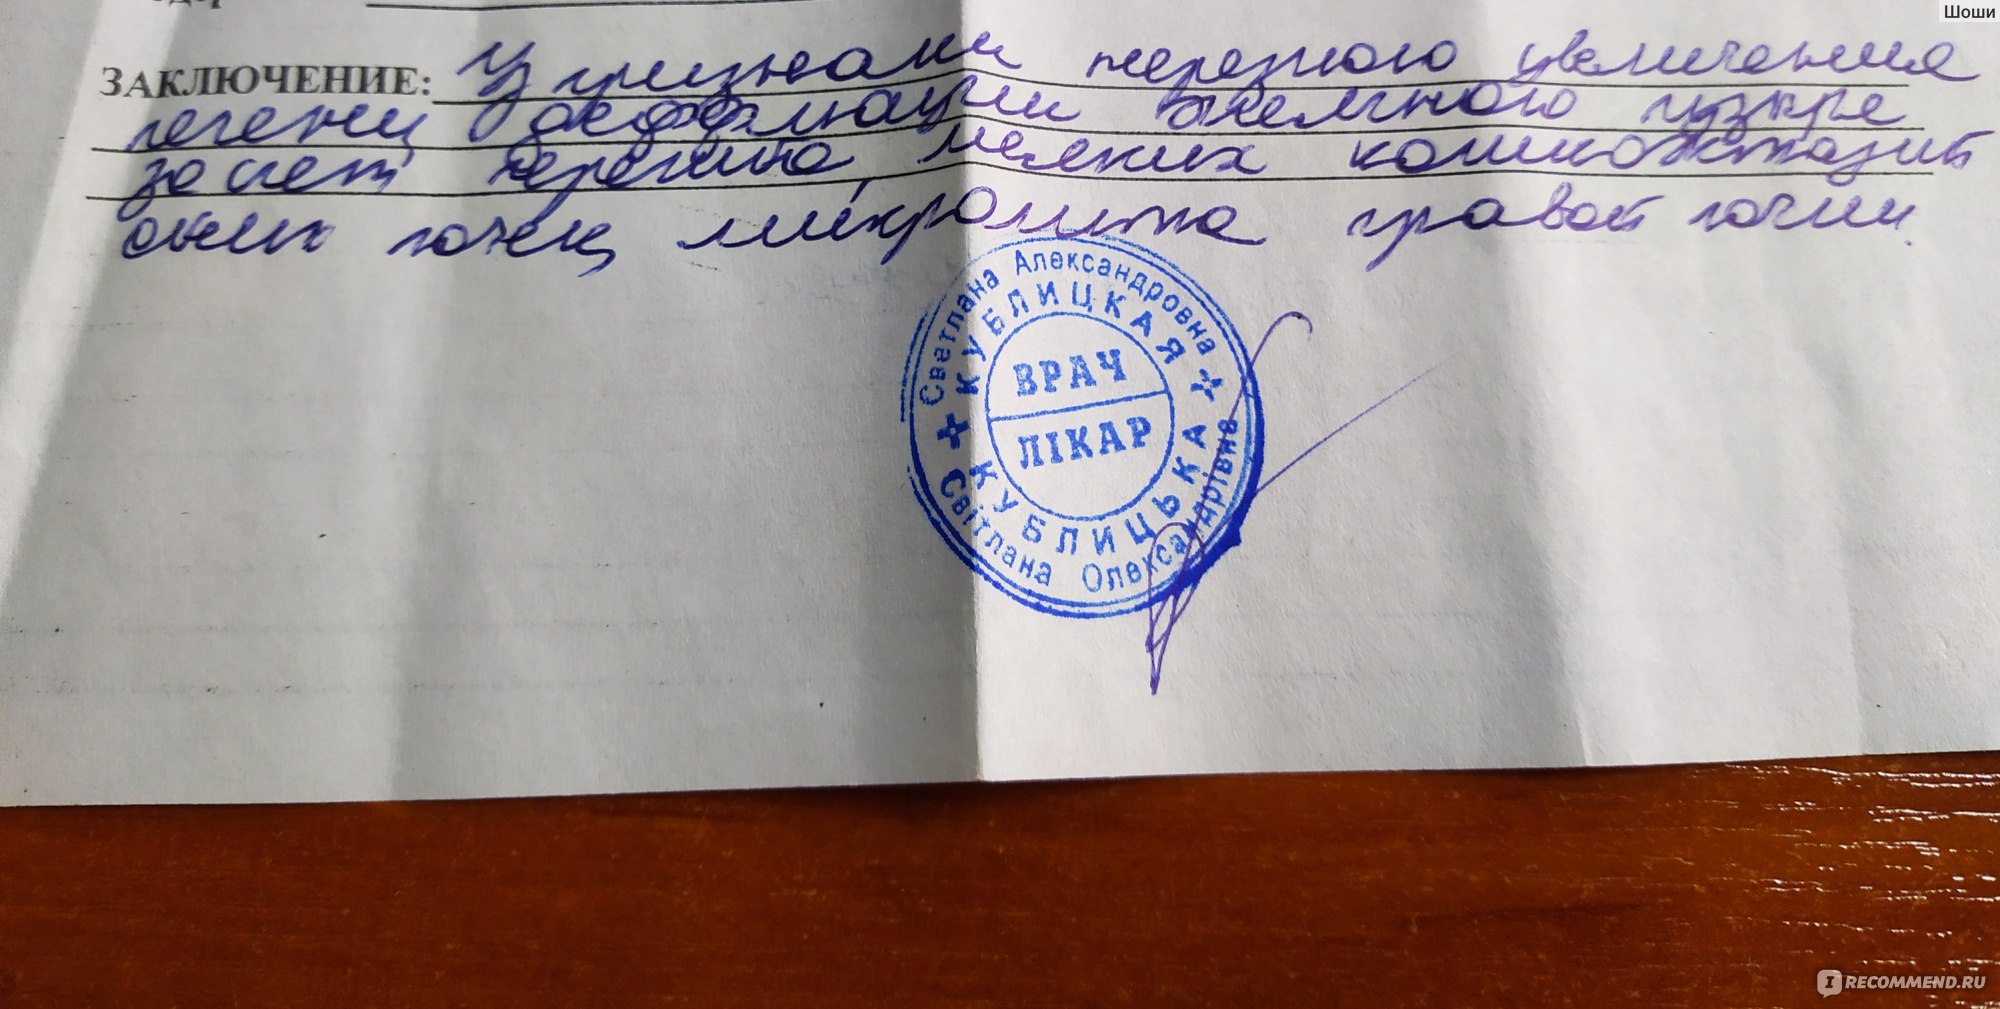 Шоши
ЗАКЛЮЧЕНИЕ: Уз признаки увеличения
печени, деформации желчного пузыря
за счет перегиба, мелких
обеих почек, микролита правой почки.
Светлана Александровна
КУБЛИЦКАЯ
ВРАЧ
ЛІКАР
КУБЛИЦЬКА
Світлана Олександрівна
IRECOMMEND.RU